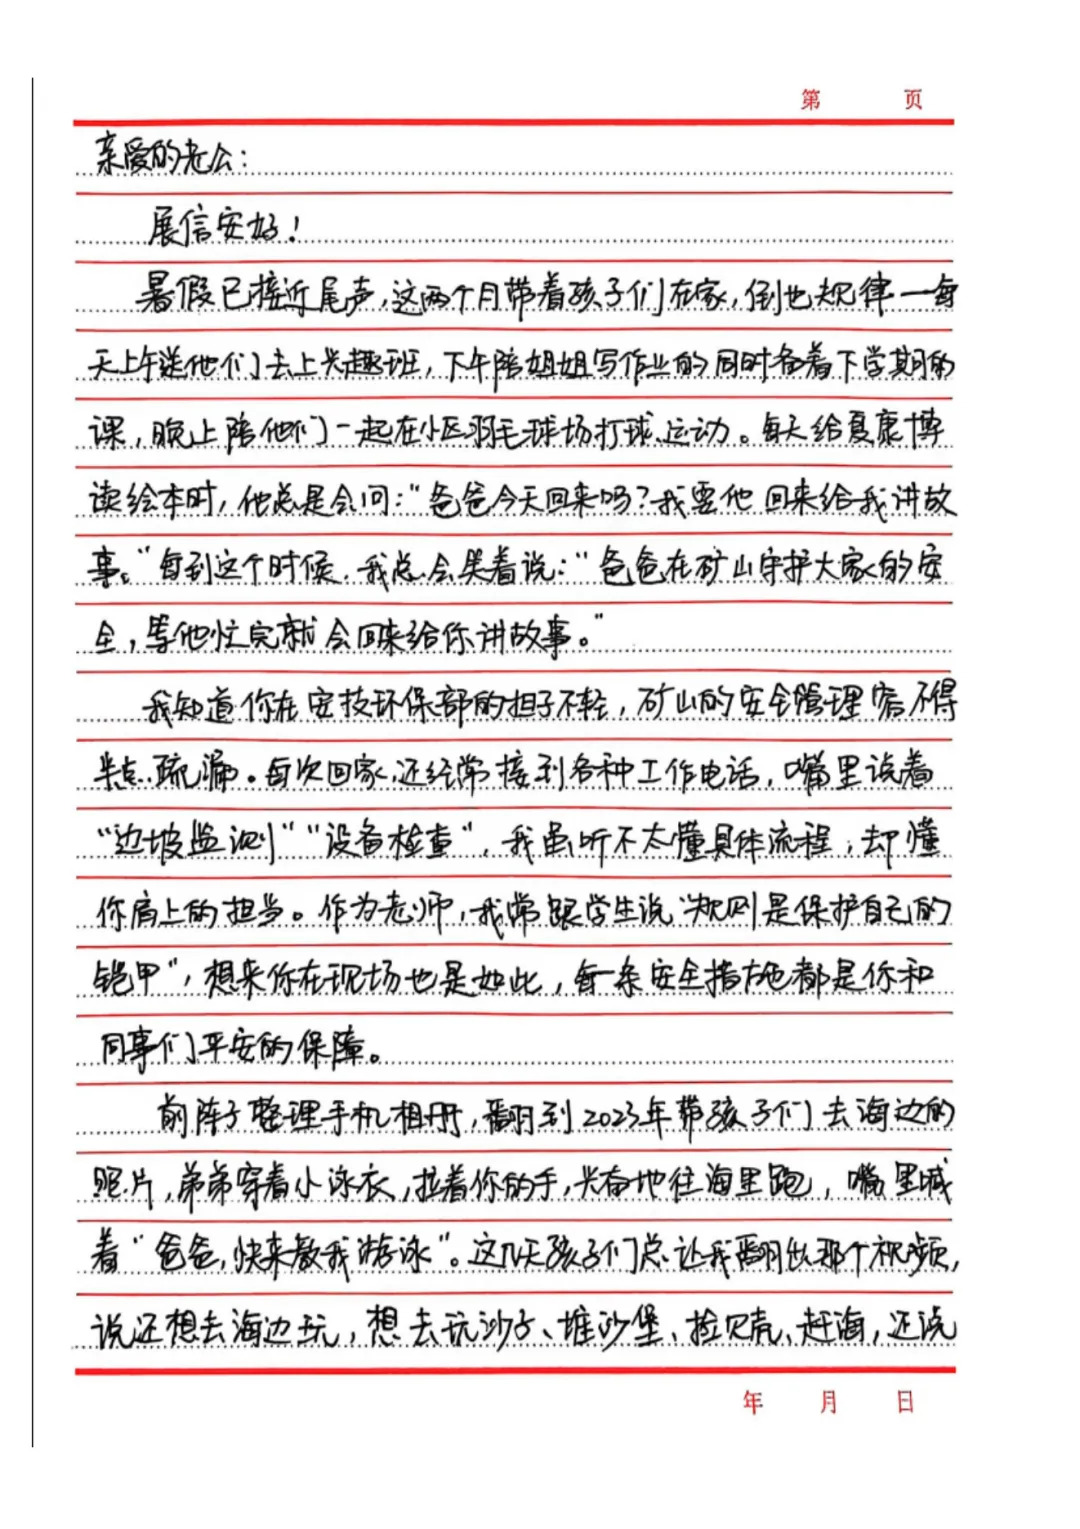 第 页
亲爱的老公：
展信安好！
暑假已接近尾声，这两个月带着孩子们在家，倒也规律—每
天上午送他们去上兴趣班，下午陪姐姐写作业的同时备着下学期的
课，晚上陪他们一起在小区羽毛球场打球、运动。每天给夏康博
读绘本时，他总是会问：“爸爸今天回来吗？我要他回来给我讲故
事。”每到这个时候，我总会笑着说：“爸爸在矿山守护大家的安
全，等他忙完就会回来给你讲故事。”
我知道你在安技环保部的担子不轻，矿山的安全管理容不得
半点疏漏。每次回家，还经常接到各种工作电话，嘴里说着
“边坡监测”“设备检查”，我虽听不太懂具体流程，却懂
你肩上的担当。作为老师，我常跟学生说“规则是保护自己的
铠甲”，想来你在现场也是如此，每一条安全措施都是你和
同事们平安的保障。
前阵子整理手机相册，翻到2023年带孩子们去海边的
照片，弟弟穿着小泳衣，拉着你的手，兴奋地往海里跑，嘴里喊
着“爸爸，快来教我游泳”。这几天孩子们总让我翻出那个视频，
说还想去海边玩，想去玩沙子、堆沙堡、捡贝壳、赶海，还说
年 月 日